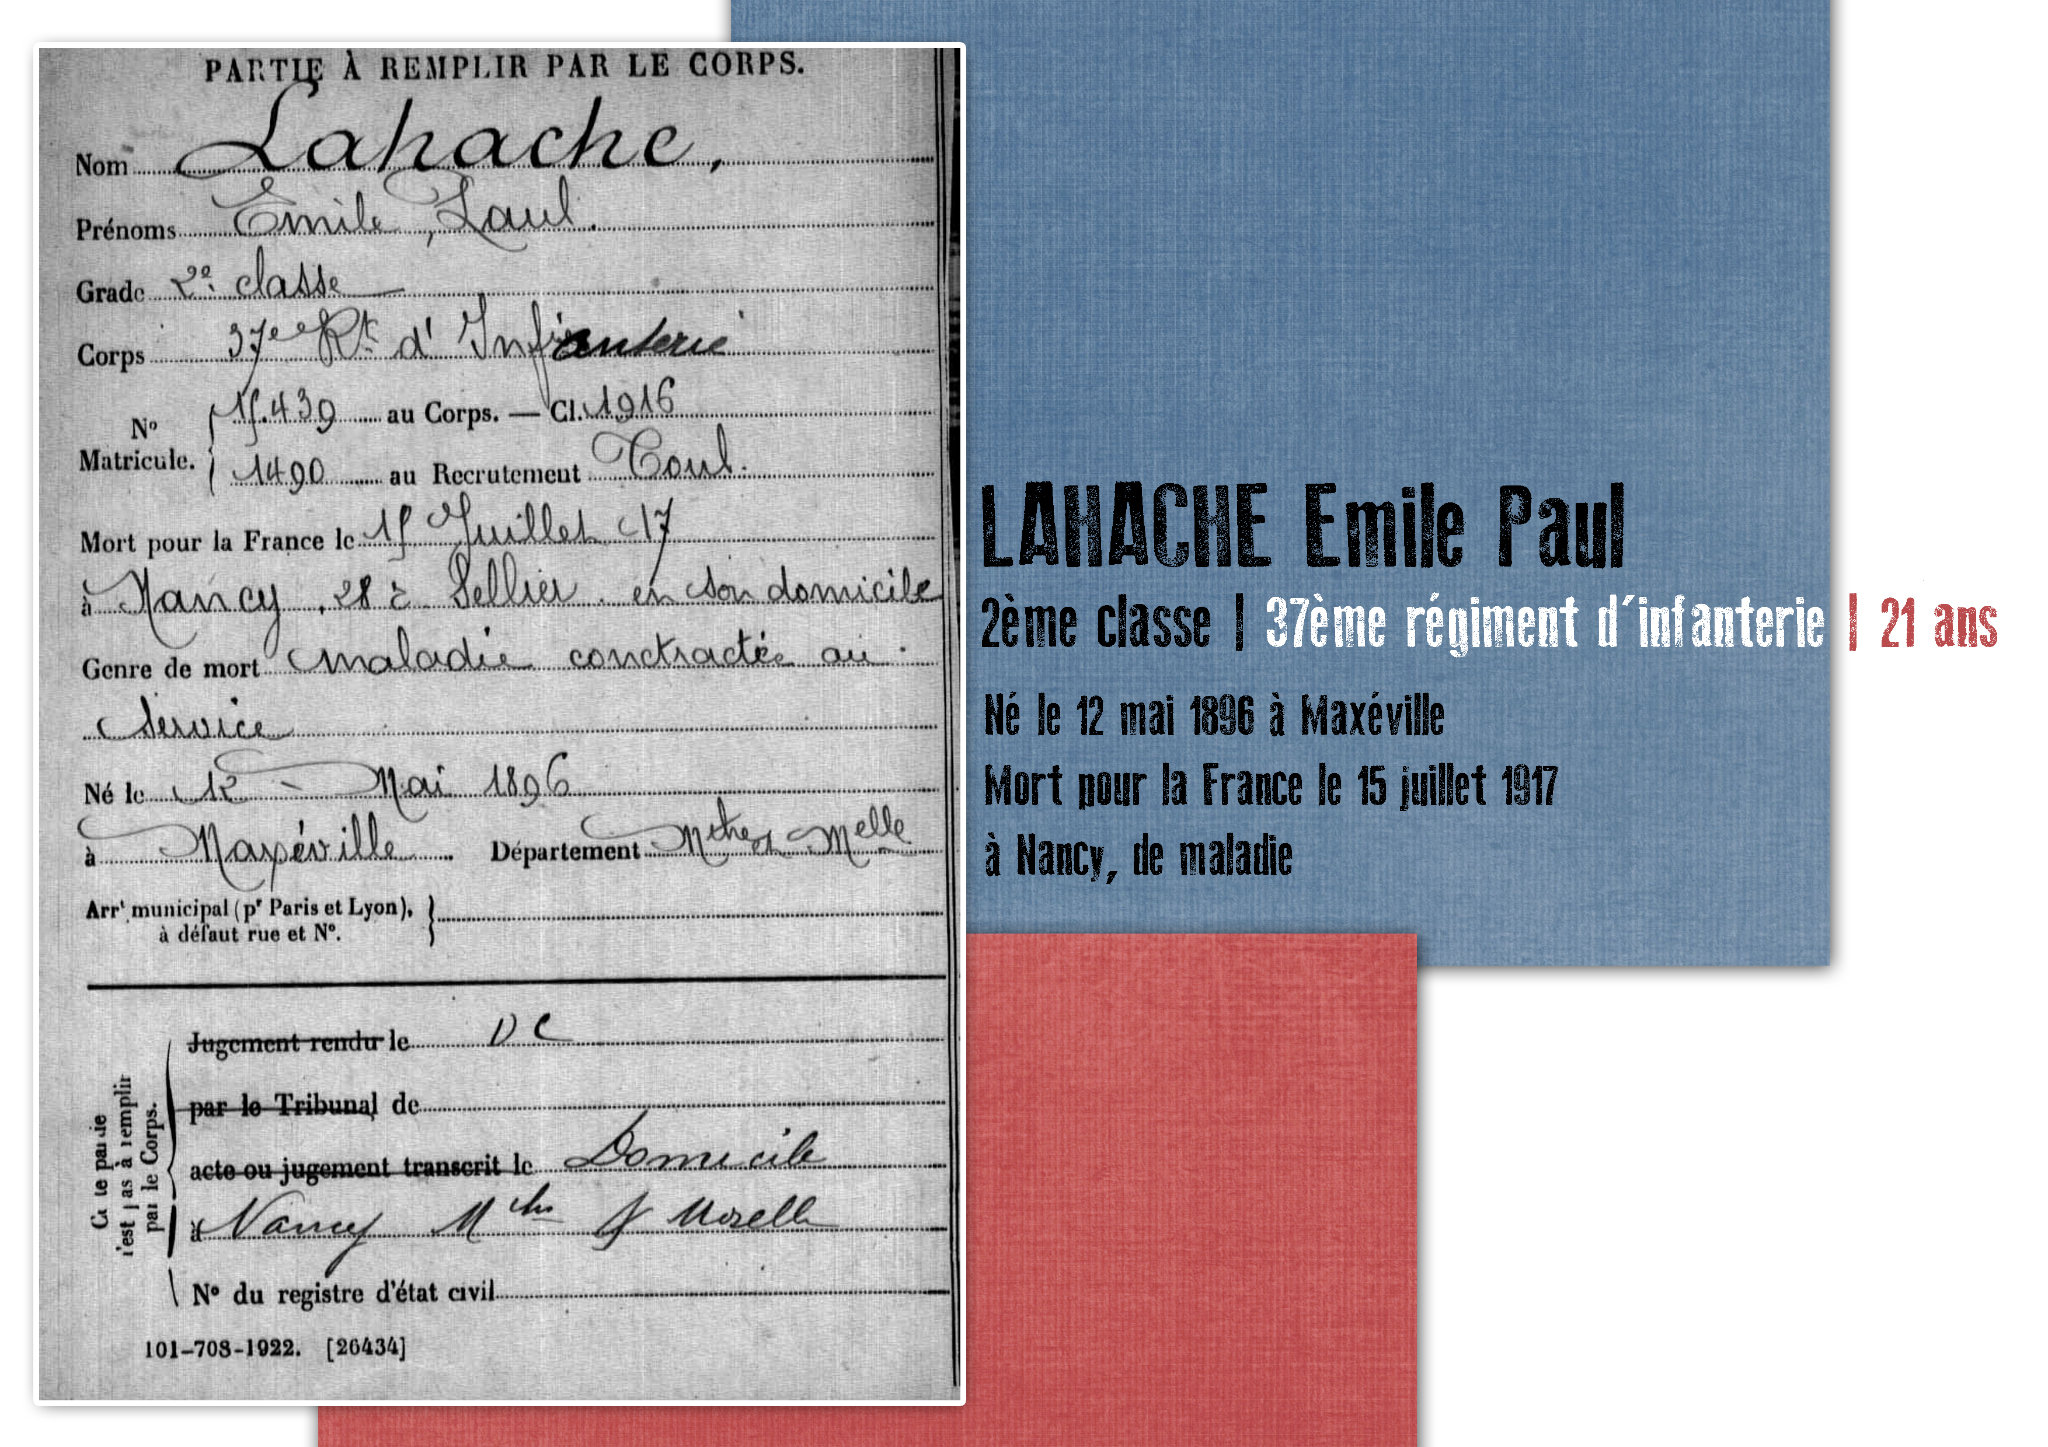 PARTIE À REMPLIR PAR LE CORPS.
Nom Lahache,
Prénoms Emile, Paul.
Grade 2e classe
Corps 37e Rt d' Infanterie
No Matricule. 15.439 au Corps. — Cl. 1916
1490 au Recrutement Toul.
Mort pour la France le 15 Juillet 17
à Nancy, 28 r. Sellier. en son domicile
Genre de mort maladie contractée au
service
Né le 12 - Mai 1896
à Maxéville Département Mthe et Melle
Arrt municipal (pr Paris et Lyon),
à défaut rue et No.
Jugement rendu le DC
par le Tribunal de
acte ou jugement transcrit le Domicile
à Nancy Mthe & Moselle
No du registre d'état civil
Cette partie
n'est pas à remplir
par le Corps.
101-708-1922. [26434]
LAHACHE Emile Paul
2ème classe | 37ème régiment d'infanterie | 21 ans
Né le 12 mai 1896 à Maxéville
Mort pour la France le 15 juillet 1917
à Nancy, de maladie